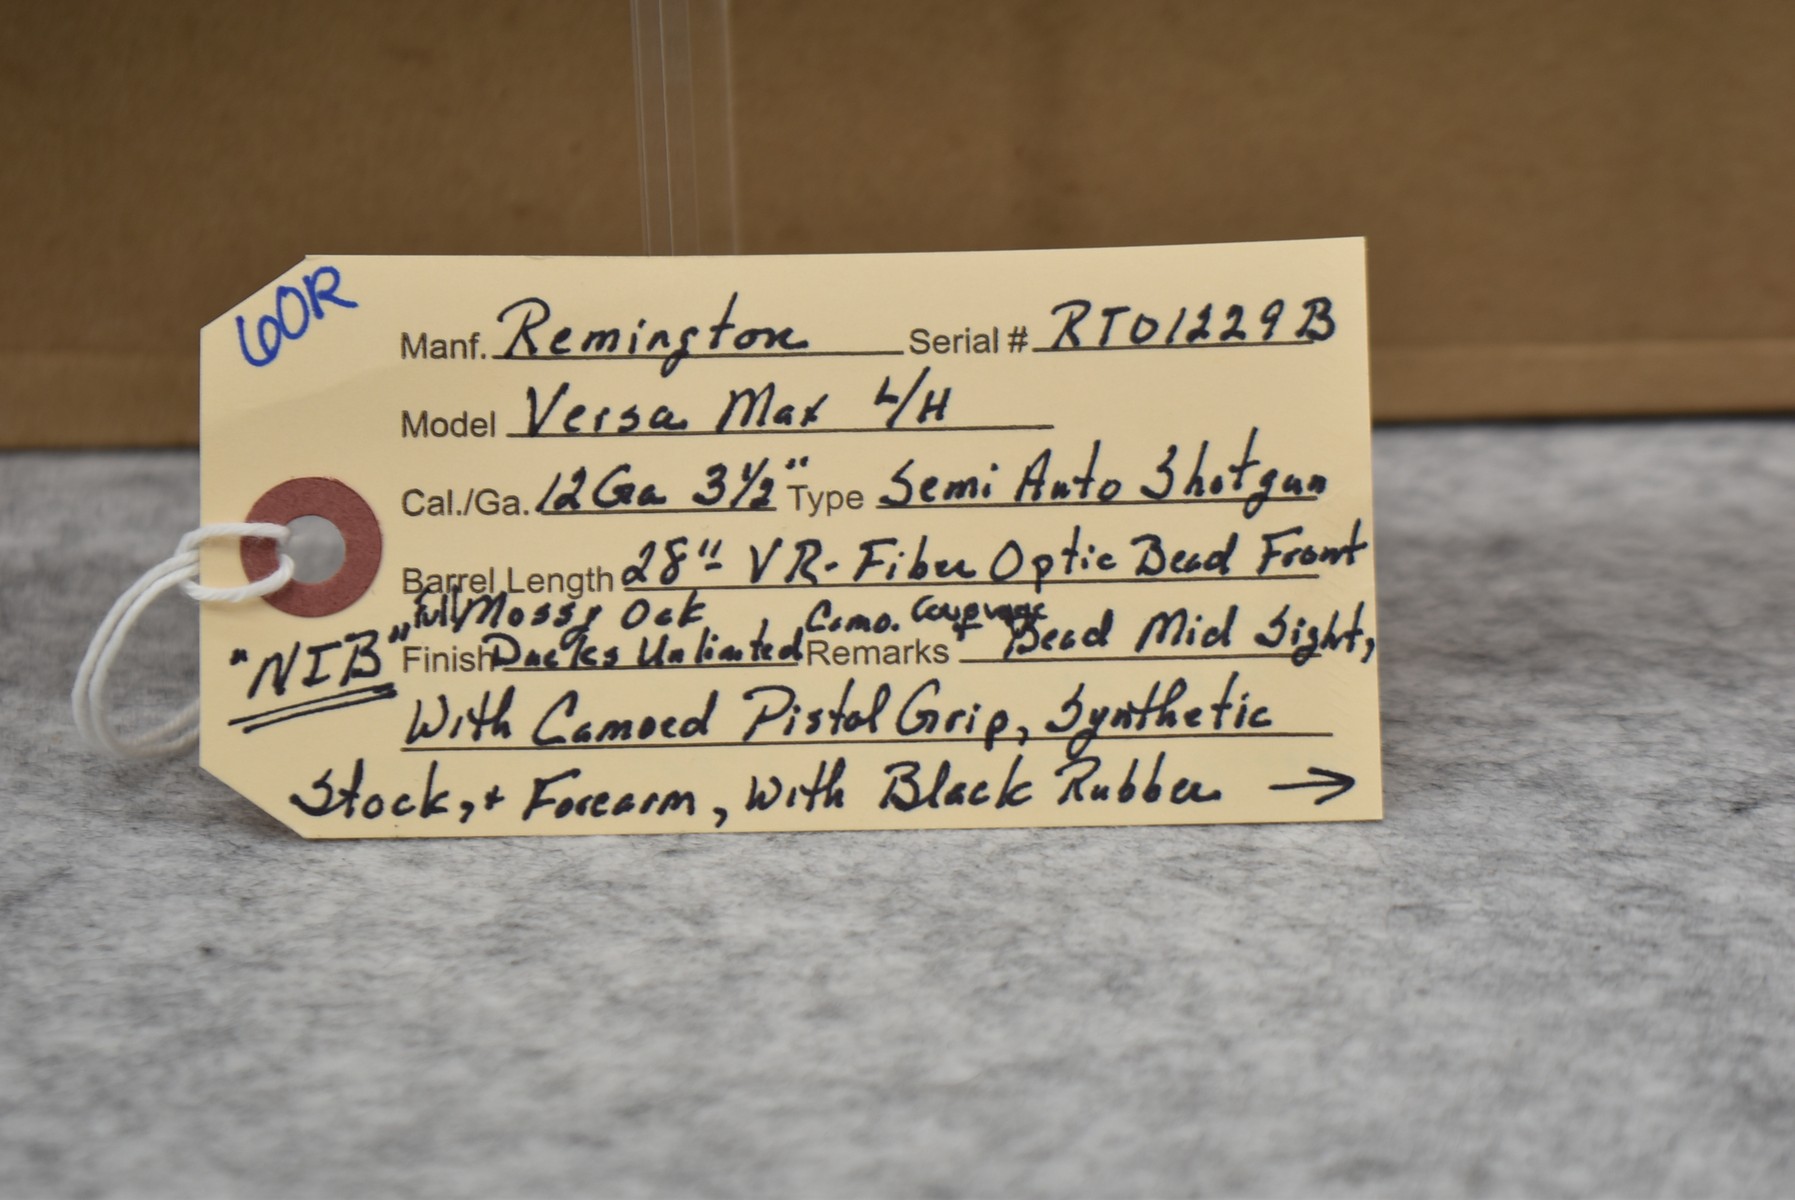 60R
Manf. Remington Serial # RT01229B
Model Versa Max L/H
Cal./Ga. 12 Ga 3½" Type Semi Auto Shotgun
Barrel Length 28" VR- Fiber Optic Bead Front
Full Mossy Oak Camo. Coverage
"NIB" Finish Ducks Unlimited Remarks + Bead Mid Sight,
With Camoed Pistol Grip, Synthetic
Stock, + Forearm, With Black Rubber →